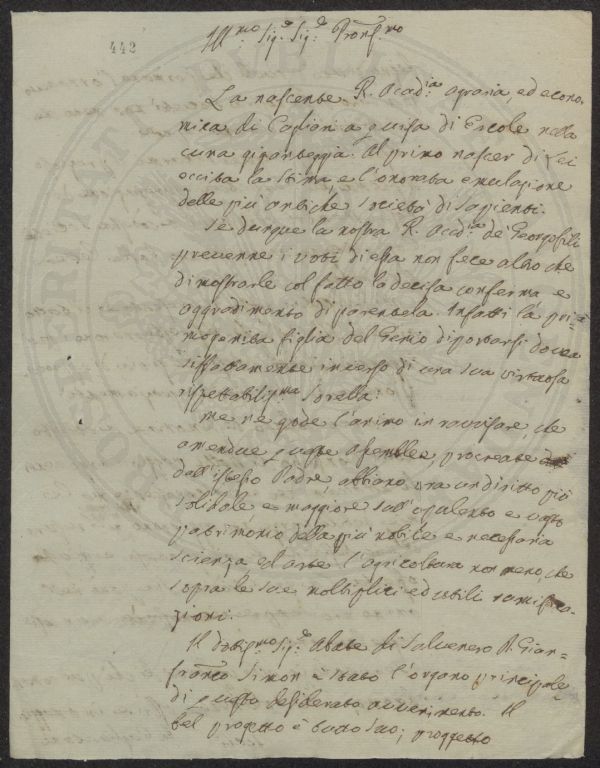 442
Ill.mo Sig.e Sig.e Pron.mo
La nascente R. Accad.ia agraria, ed econo-
mica di Cagliari a guisa di Ercole nella
cuna giganteggia. Al primo nascer di Lei
eccita la stima, e l'onorata emulazione
delle più antiche società di sapienti.
Se dunque la nostra R. Accd.ia de' Georgofili
prevenne i voti di essa non fece altro che
dimostrarle col fatto la decisa conferma e
aggradimento di parentela. Infatti la pri-
mogenita figlia del Genio diportarsi dovea
siffattamente inverso di una sua virtuosa
rispettabilis.ma Sorella.
Me ne gode l'animo in ravvisare, che
amendue queste Assemblee, procreate
dall'istesso Padre, abbiano ora un diritto più
solidale e maggiore sull'opulento e vasto
patrimonio della più nobile e necessaria
scienza ed arte l'agricoltura non meno, che
sopra le sue moltiplici ed utili ramifica-
zioni.
Il dottis.mo Sig.e Abate di Salvenero D. Gian-
franco Simon è stato l'organo principale
di questo desiderato avvenimento. Il
bel progetto è tutto suo; progetto